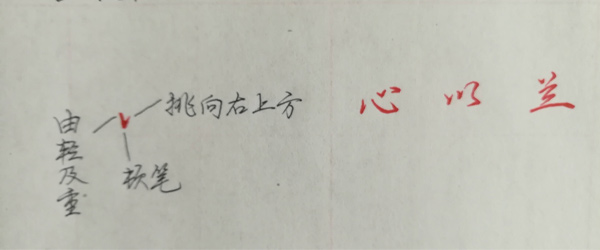 由轻及重
挑向右上方
顿笔
心 以 兰